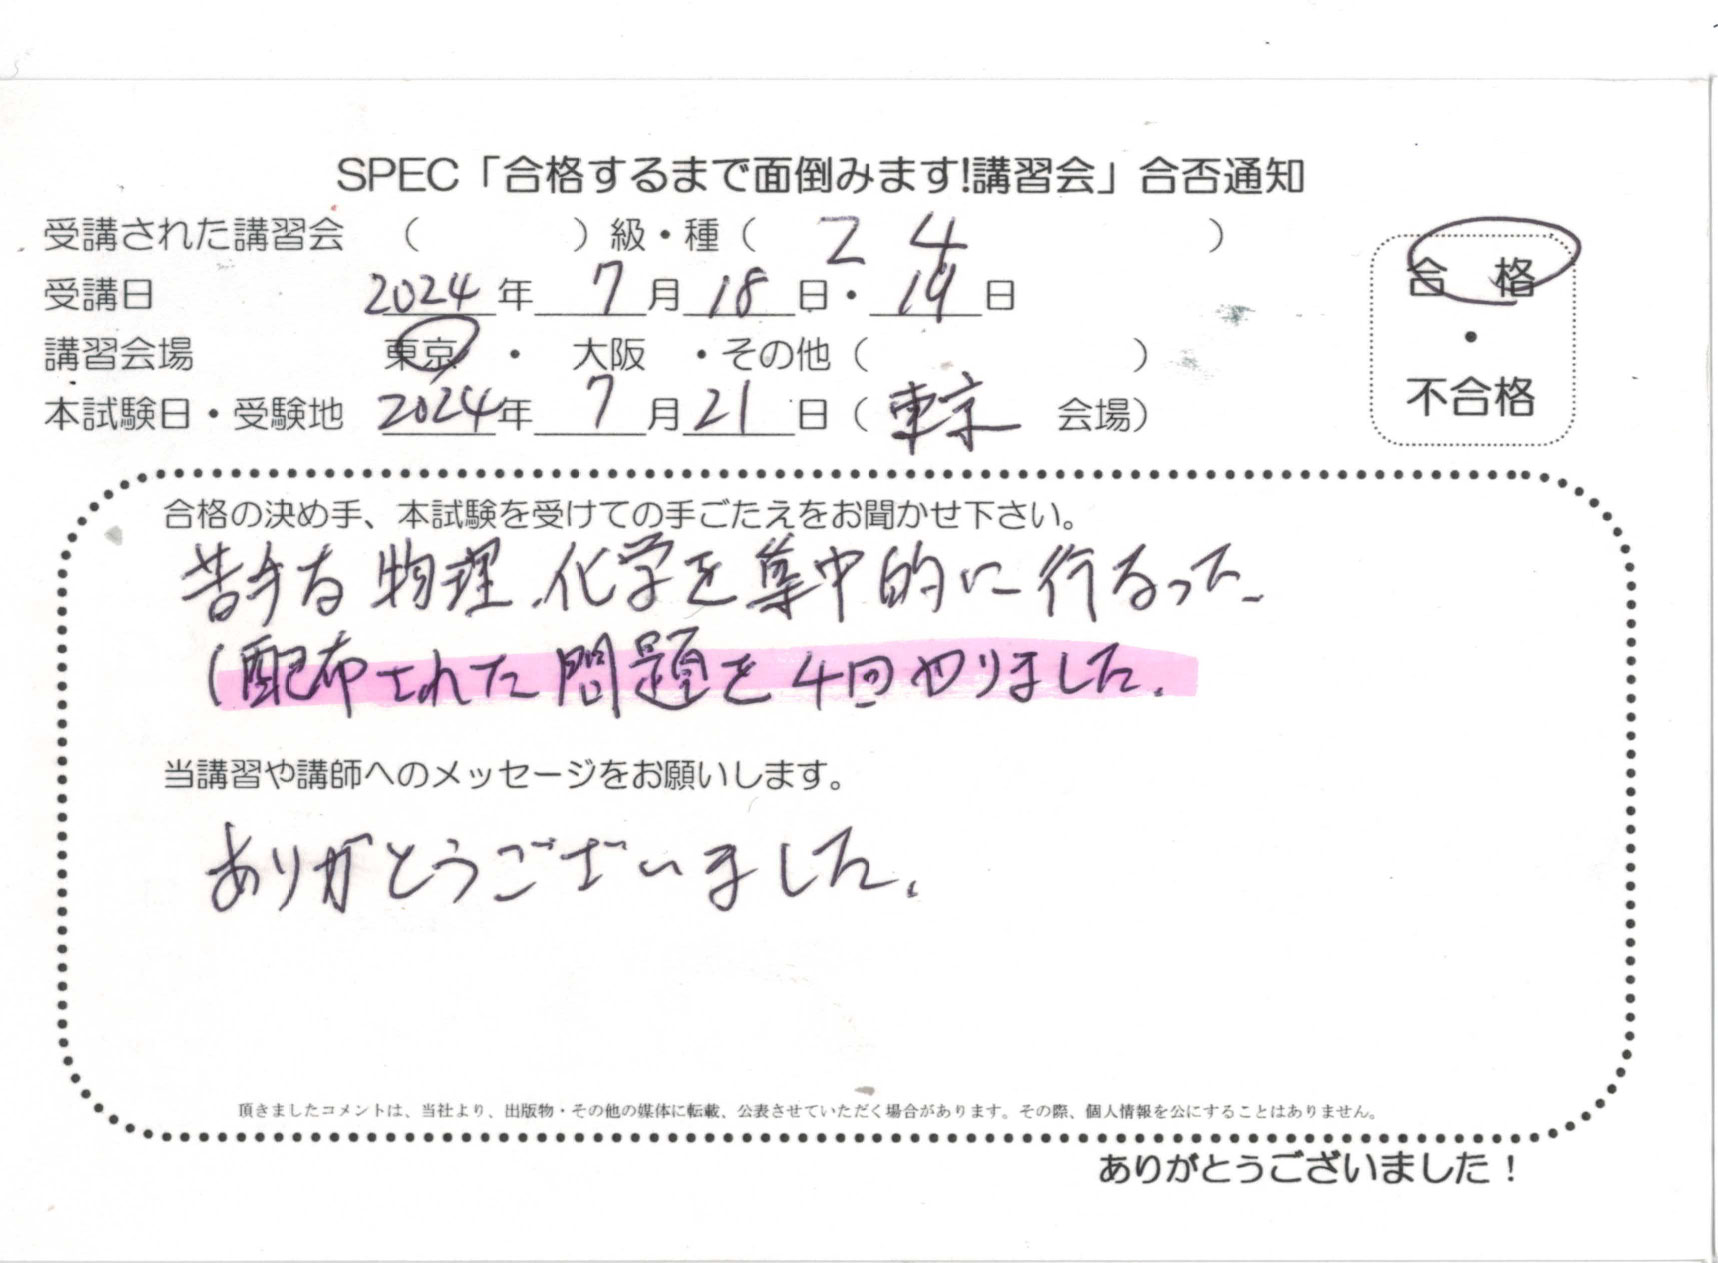 SPEC「合格するまで面倒みます!講習会」合否通知
受講された講習会 （ ）級・種（ Z 4 ）
受講日 2024年 7月 18日・ 19日
講習会場 東京 ・ 大阪 ・その他（ ）
本試験日・受験地 2024年 7月 21日（ 東京 会場）
合 格
・
不合格
合格の決め手、本試験を受けての手ごたえをお聞かせ下さい。
苦手な物理、化学を集中的に行なった。
（配布された問題を4回やりました。
当講習や講師へのメッセージをお願いします。
ありがとうございました。
頂きましたコメントは、当社より、出版物・その他の媒体に転載、公表させていただく場合があります。その際、個人情報を公にすることはありません。
ありがとうございました！